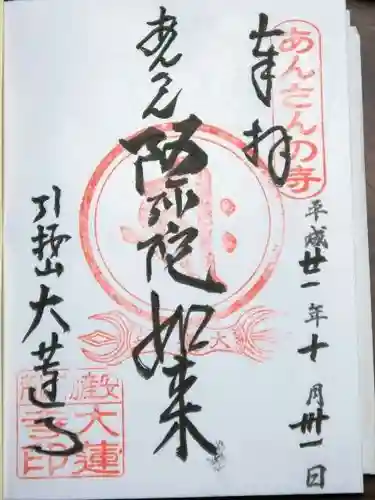 奉拝
あんさんの寺
平成廿一年十月卅一日
あんざん
阿弥陀如来
引接山
大蓮寺
大蓮
寺印